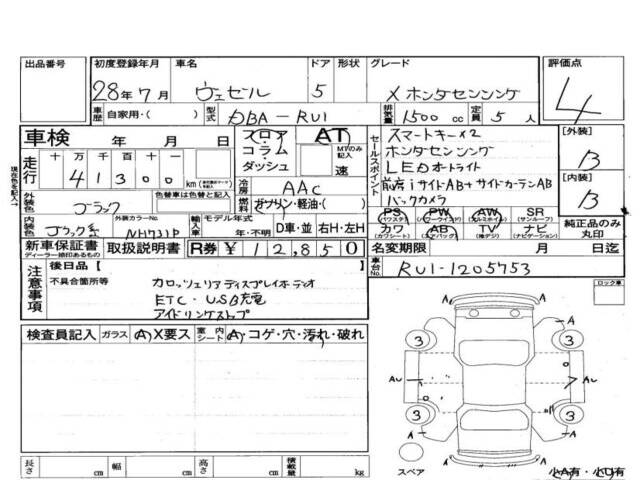 出品番号 初度登録年月 車名 ドア 形状 グレード 評価点
28年7月 ヴェゼル 5 X ホンダセンシング 4
車歴 自家用・( ) 型式 DBA-RU1 排気量 1500 cc 定員 5 人
車検 年 月 日
フロア コラム ダッシュ AT MTのみ記入 速
セールスポイント
スマートキー×2
ホンダセンシング
LEDオートライト
前席iサイドAB+サイドカーテンAB
バックカメラ
[外装] B
[内装] B
純正品のみ丸印
走行 十 万 千 百 十
41300 km
冷房 AAC
燃料 ガソリン・軽油・( )
外装色 ブラック 色替車は色替と記入
内装色 ブラック系 外装カラーNo. NH731P
輸入車 モデル年式 年・不明 D車・並 右H・左H
PS (パワステ) PW (パワーウインド) AW (アルミホイル) SR (サンルーフ)
カワ (カワシート) AB (エアバッグ) TV (地デジ) ナビ (ナビゲーション)
新車保証書 ディーラー捺印あるもの 取扱説明書 R券 ¥ 12,850
名変期限 月 日迄
車台No. RU1-1205753
注意事項
後日品【 】
不具合箇所等
カロッツェリアディスプレイオーディオ
ETC・USB充電
アイドリングストップ
ロック車
検査員記入 ガラス A X要ス 室内シート A・コゲ・穴・汚れ・破れ
A A
3 3
AU AU
3 3
A A
スペア
小A有・小U有
長さ cm 幅 cm 高さ cm 積載量 kg